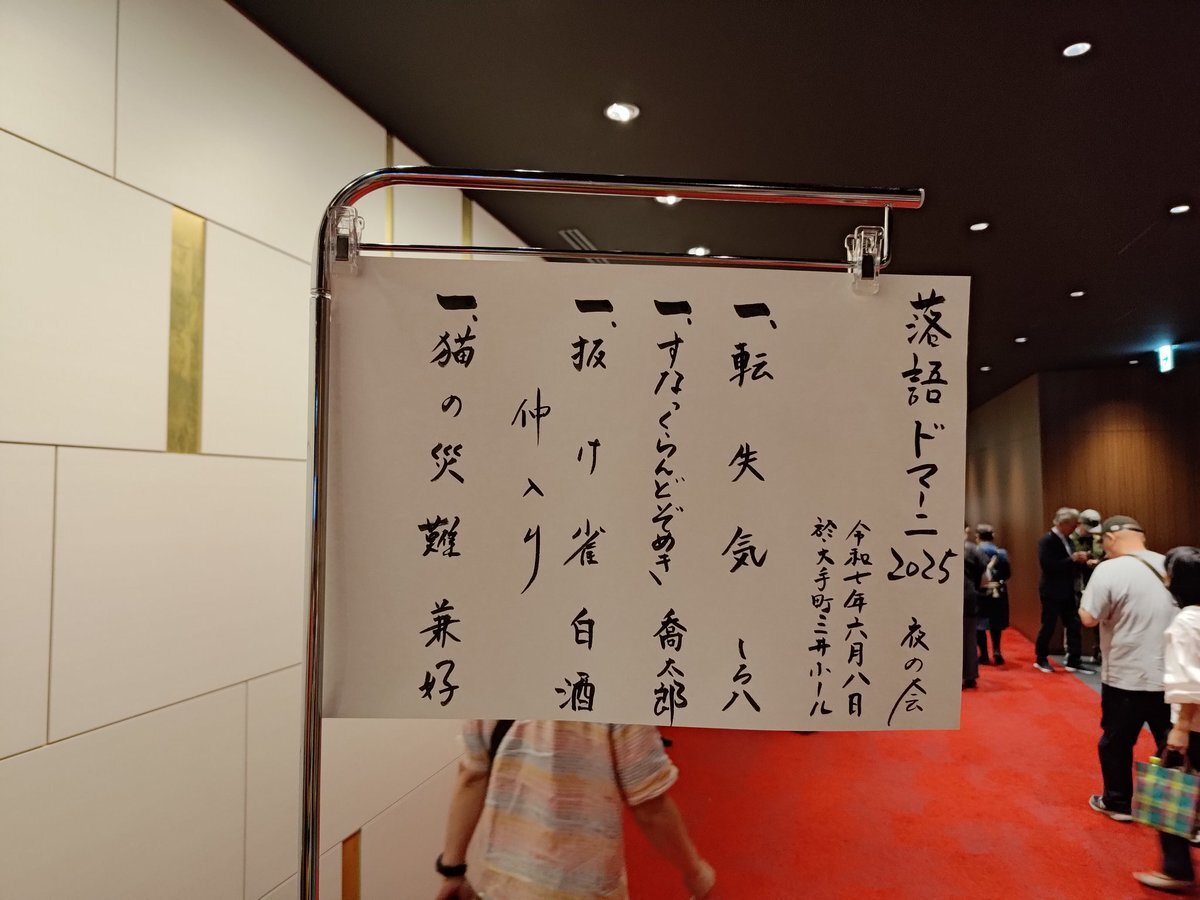 落語ドマーニ2025 夜の会
令和七年六月八日
於、大手町三井ホール
一、転失気 しろ八
一、すなっくらんどぞめき 喬太郎
一、抜け雀 白酒
仲入り
一、猫の災難 兼好